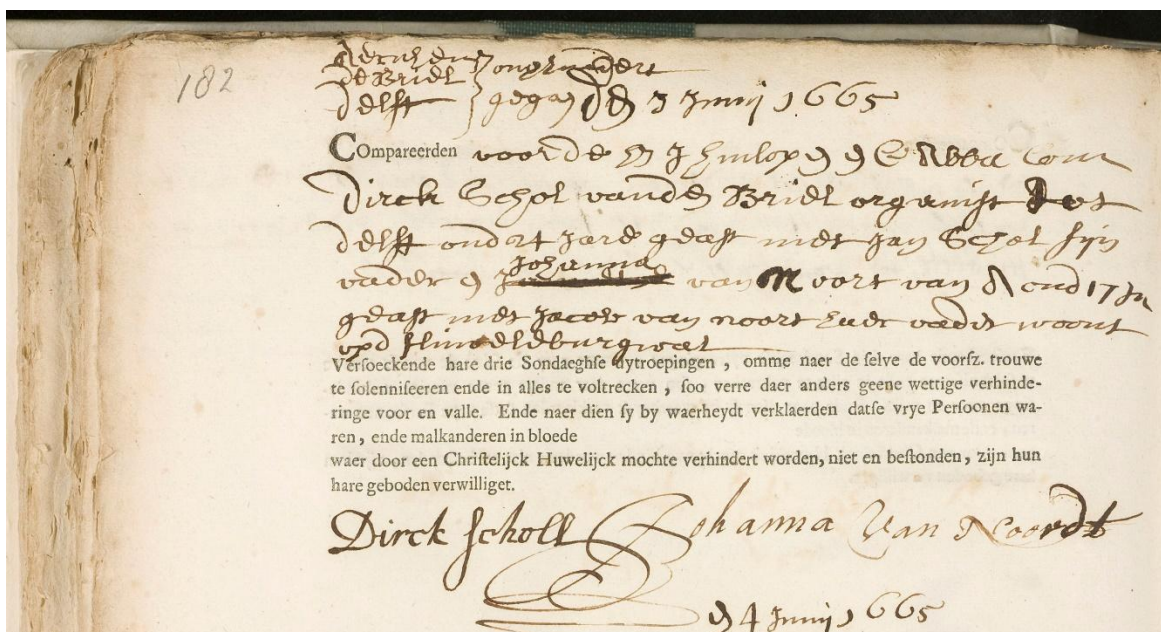 182
de Briel
delft } gegaen den 3 Junij 1665
Compareerden voor de J Hinlopen en Com
Dirck Schol vanden Briel organist tot
delft out jare geast met Jan Schol sijn
vader en Johanna van Noort van A oud 17 Ja
geast met Jacob van noort haer vader woont
opd fluweeleburgwal
Versoeckende hare drie Sondaeghse uytroepingen, omme naer de selve de voorsz. trouwe
te solenniseeren ende in alles te voltrecken, soo verre daer anders geene wettige verhinde-
ringe voor en valle. Ende naer dien sy by waerheydt verklaerden datse vrye Persoonen wa-
ren, ende malkanderen in bloede
waer door een Christelijck Huwelijck mochte verhindert worden, niet en bestonden, zijn hun
hare geboden verwilliget.
Dirck Scholl Johanna Van Noordt
4 Junij 1665